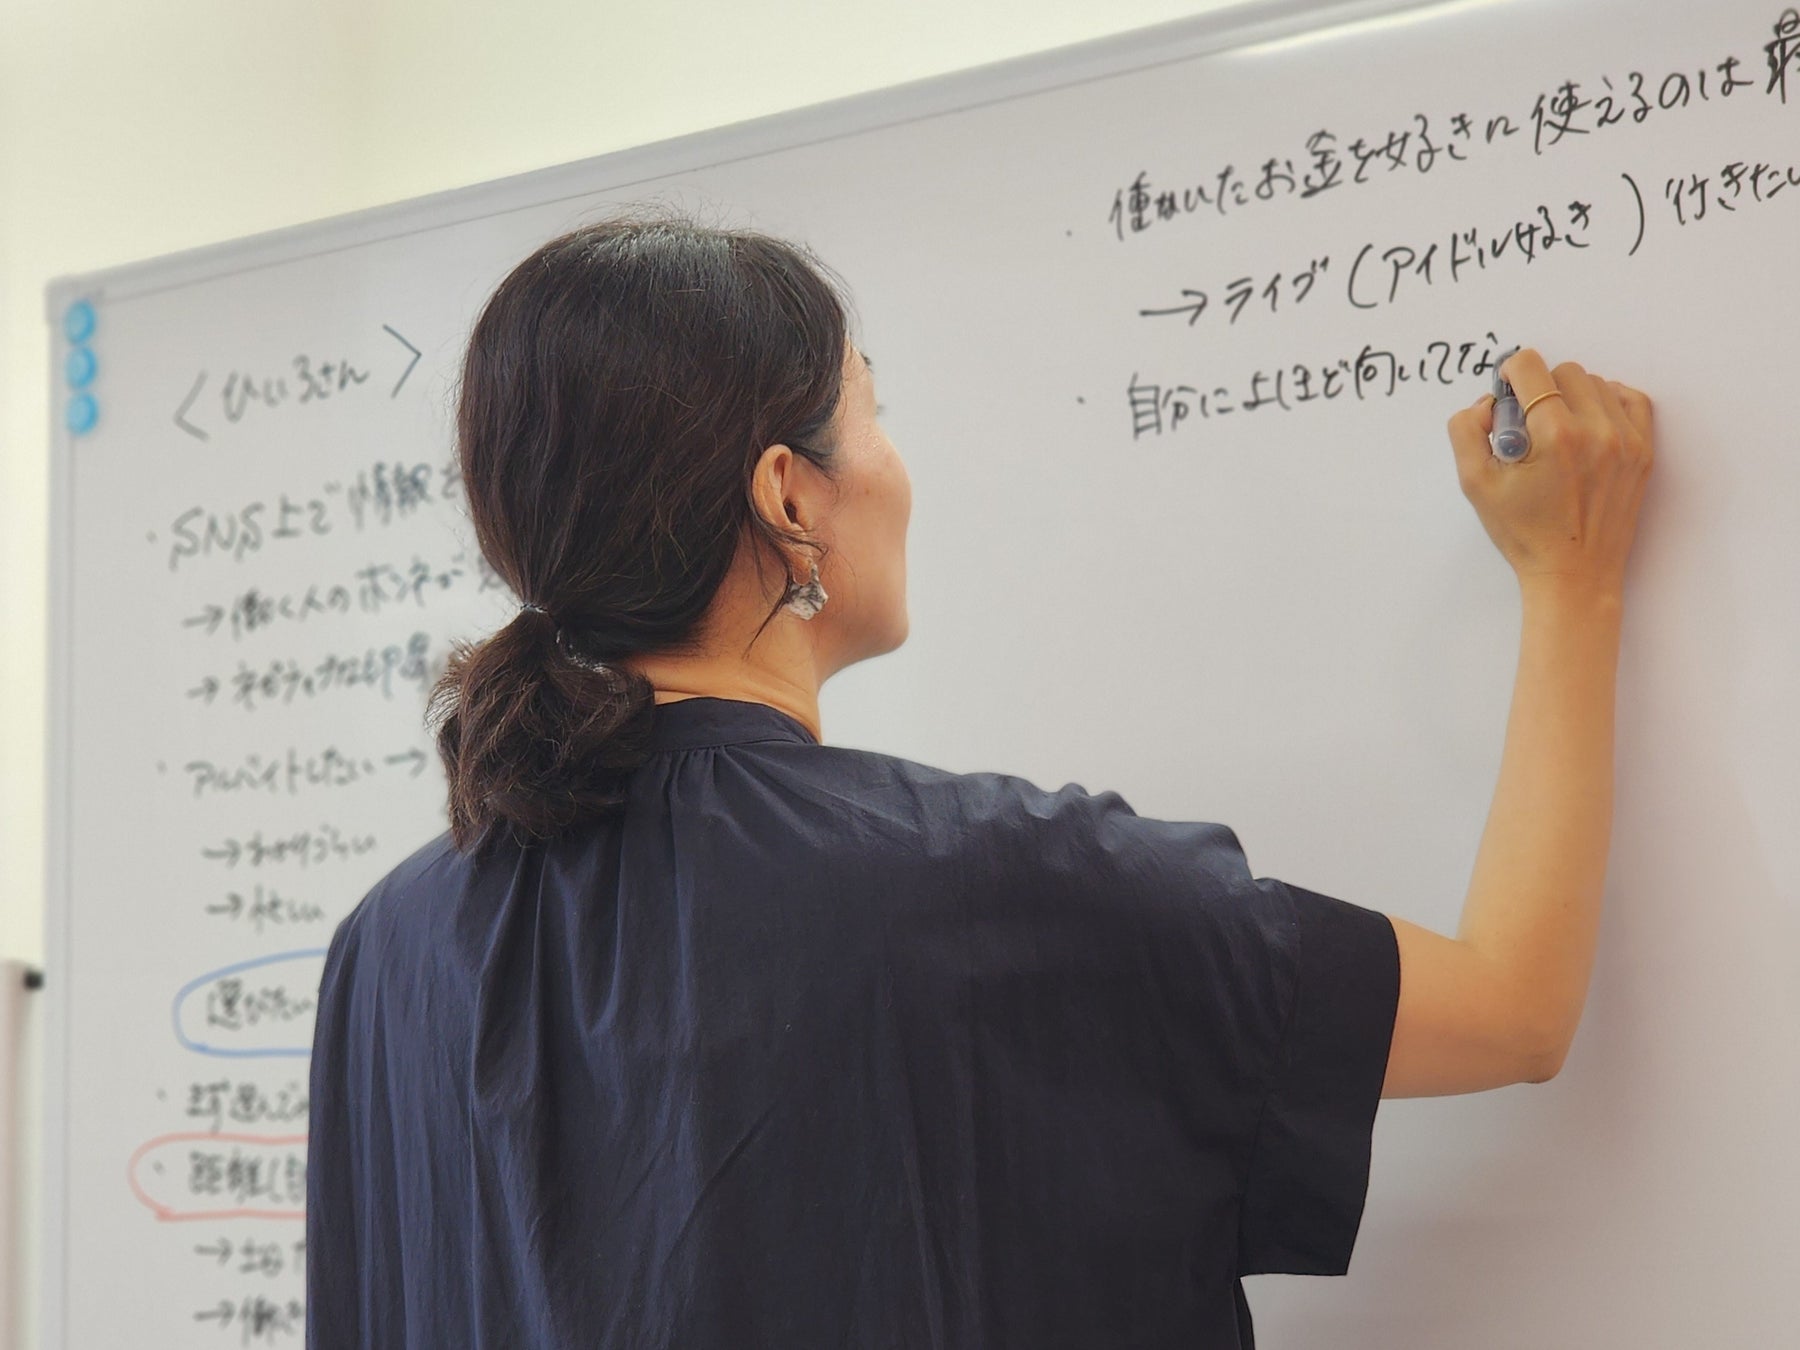 〈ひいろさん〉
・SNS上で情報を
→働く人のホンネが
→ネガティブな印象
・アルバイトしたい→
→わかりづらい
→忙しい
選びたい
・まず選んで
・距離
→
→働き
・働いたお金を好きに使えるのは最
→ライブ(アイドル好き)行きたい
・自分によほど向いてな